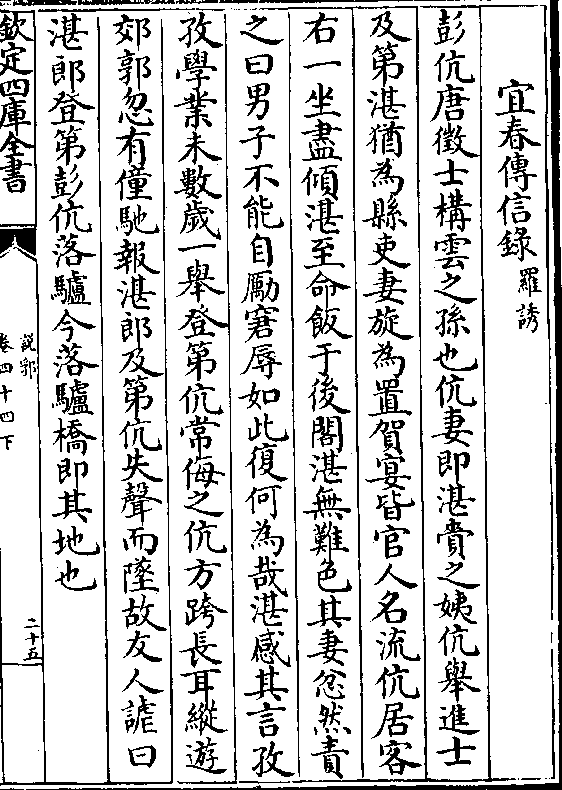 宜春傳信錄 羅誘
彭伉唐徵士構雲之孫也伉妻即湛賁之姨伉舉進士
及第湛猶為縣吏妻旋為置賀宴皆官人名流伉居客
右一坐盡傾湛至命飯于後閣湛無難色其妻忿然責
之曰男子不能自勵窘辱如此復何為哉湛感其言孜
孜學業未數歲一舉登第伉常侮之伉方跨長耳縱遊
郊郭忽有僮馳報湛郎及第伉失聲而墜故友人謔曰
湛郎登第彭伉落驢今落驢橋即其地也
欽定四庫全書
說郛
卷四十四下
二十五